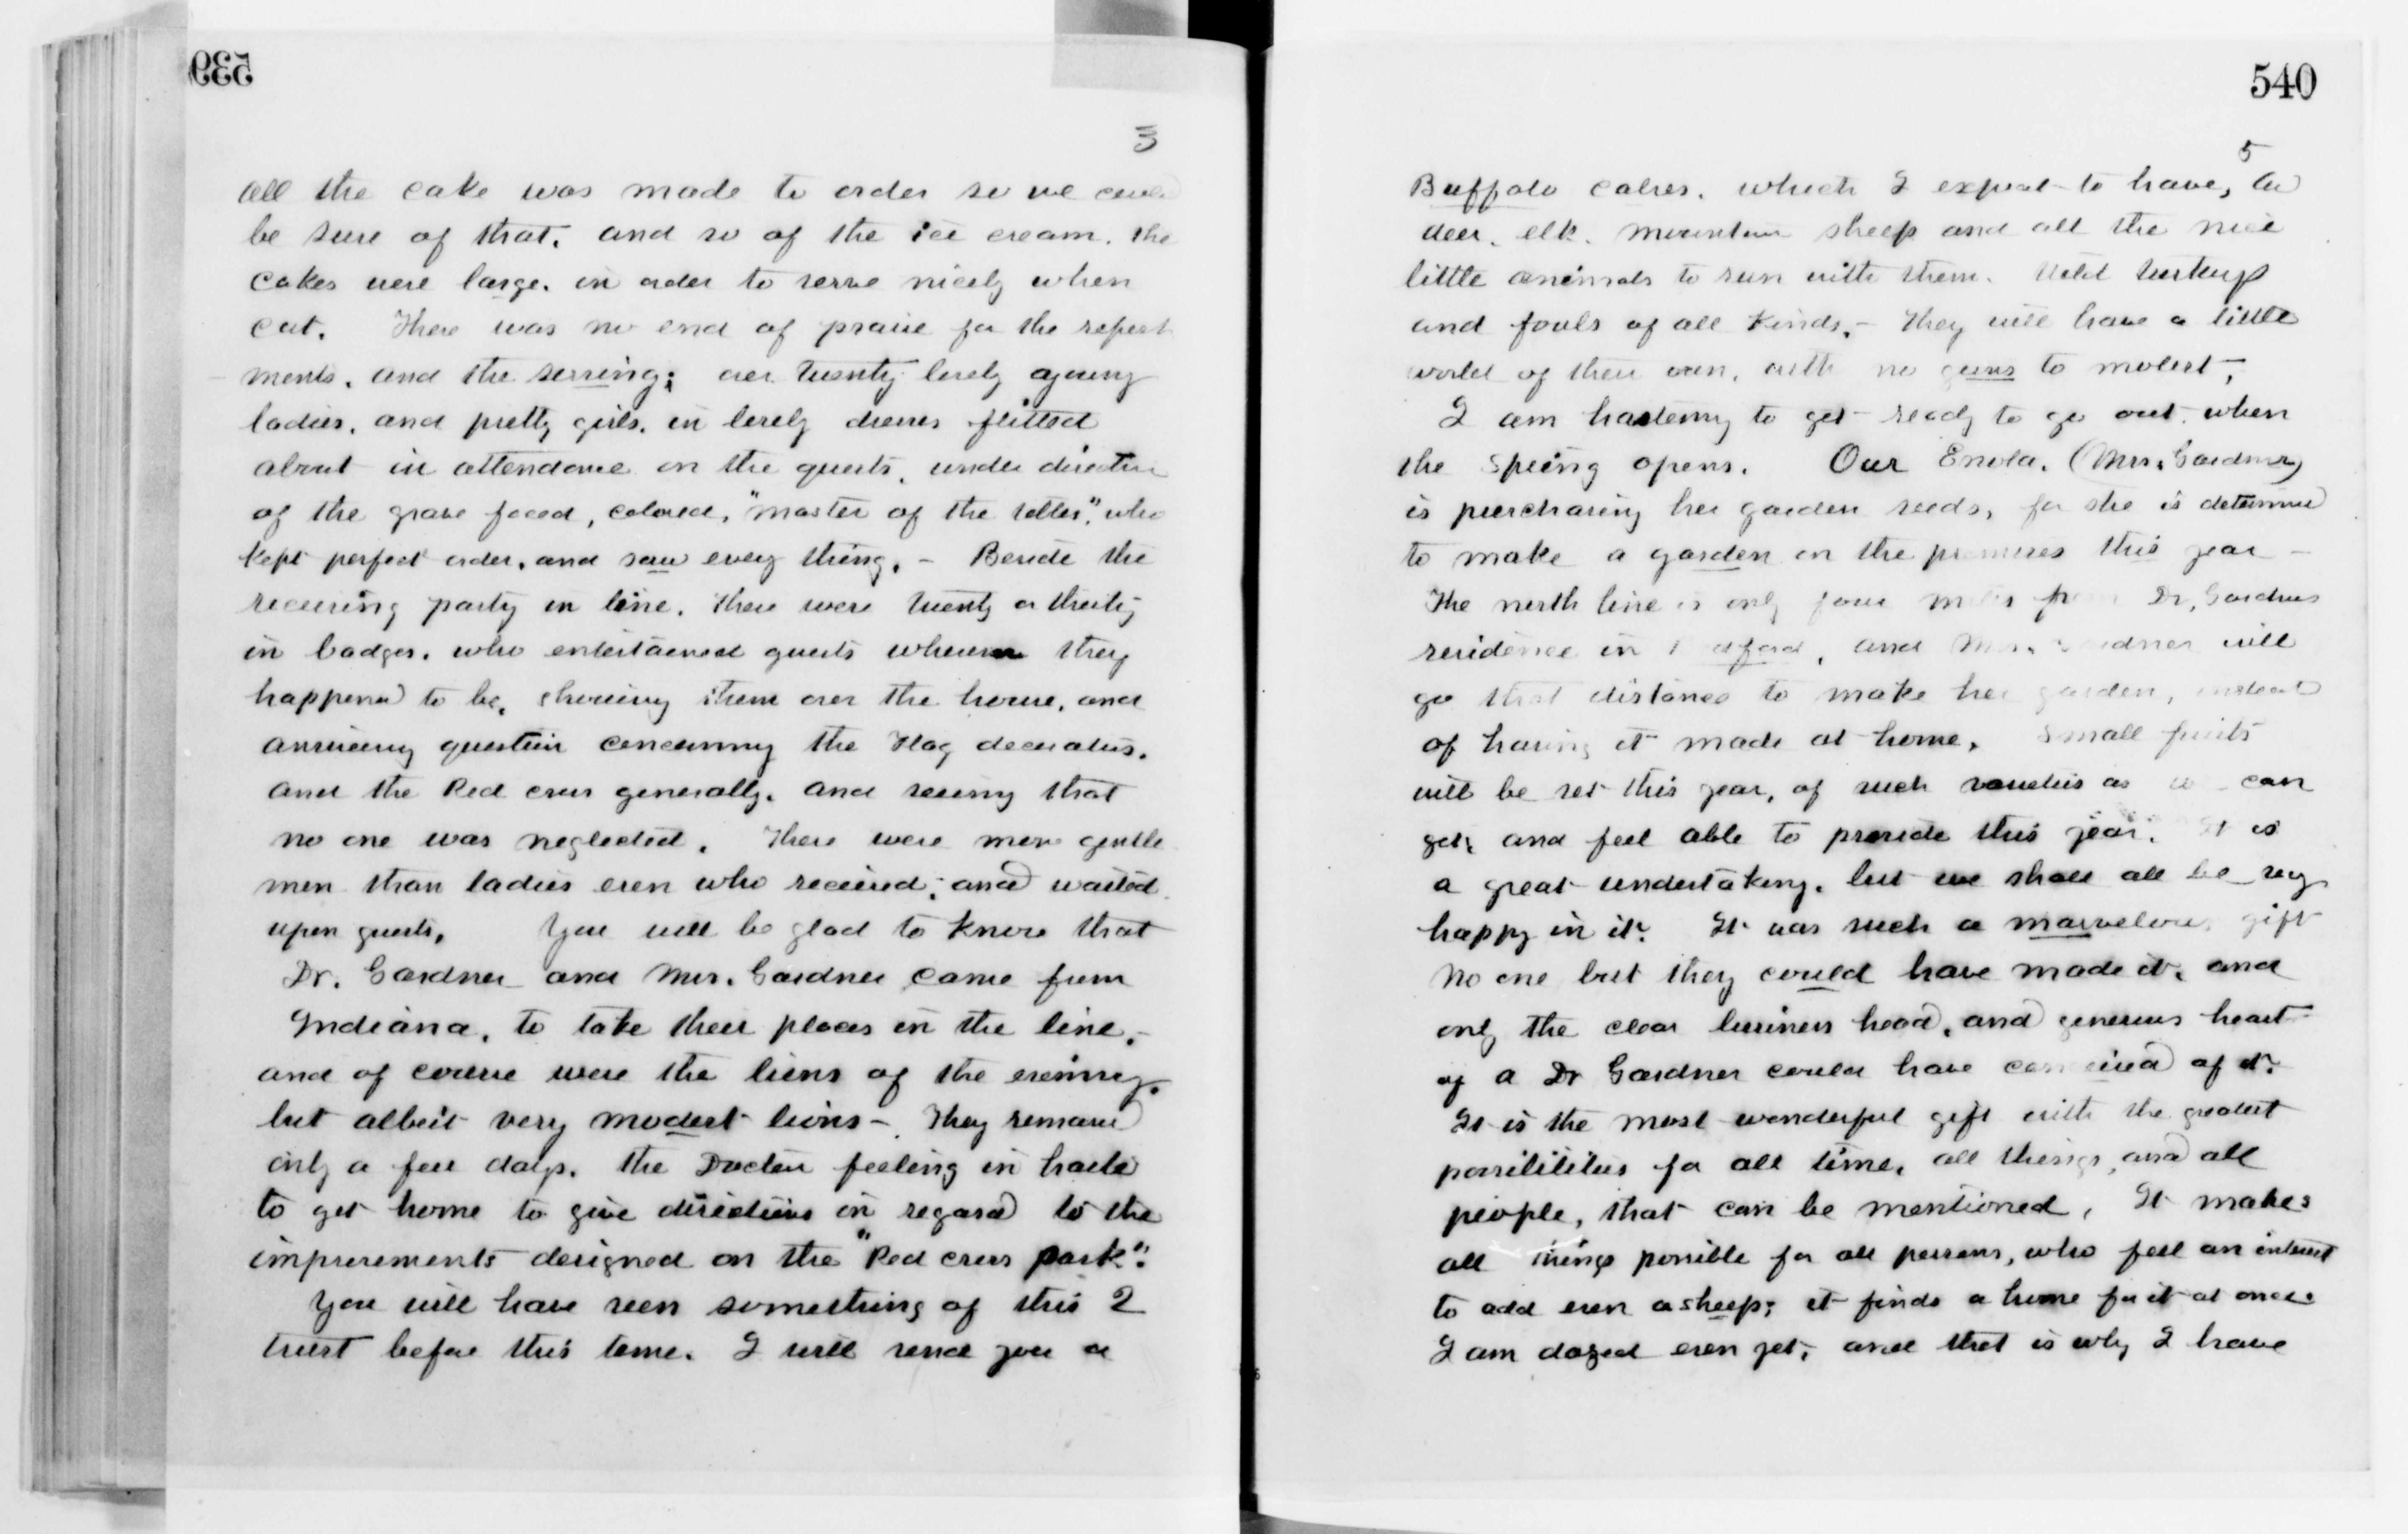 539
3
all the cake was made to order so we could
be sure of that. and so of the ice cream. the
cakes were large. in order to serve nicely when
cut. There was no end of praise for the refresh
ments. and the serving; over twenty lovely young
ladies. and pretty girls. in lovely dresses flitted
about in attendance on the guests. under direction
of the grave faced, colored, "master of the tables", who
kept perfect order. and saw every thing. - Beside the
receiving party in line. there were twenty or thirty
in badges. who entertained guests wherever they
happened to be. showing them over the house. and
answering question concerning the Flag decorations.
and the Red cross generally. and seeing that
no one was neglected. There were more gentle
men than ladies even who received; and waited
upon guests. You will be glad to know that
Dr. Gardner and Mrs. Gardner came from
Indiana. to take their places in the line. -
and of course were the lions of the evening.
but albeit very modest lions -. They remained
only a few days. the Doctor feeling in haste
to get home to give directions in regard to the
improvements designed on the "Red cross park".
You will have seen something of this I
trust before this time. I will send you a
540
5
Buffalo calves. which I expect to have,
deer. elk. mountain sheep and all the nice
little animals to run with them. Wild turkeys
and fowls of all kinds. - They will have a little
world of their own, with no guns to molest -,
I am hastening to get ready to go out. when
the spring opens. Our Enola. (Mrs. Gardner)
is purchasing her garden seeds, for she is determined
to make a garden on the premises this year -
The north line is only four miles from Dr. Gardners
residence in Bedford, and Mrs. Gardner will
go that distance to make her garden, instead
of having it made at home. Small fruits
will be set this year, of such varieties as we can
get, and feel able to provide this year. It is
a great undertaking. but we shall all be very
happy in it. It was such a marvelous gift
No one but they could have made it. and
only the clear business head, and generous heart
of a Dr Gardner could have conceived of it.
It is the most wonderful gift with the greatest
possibilities for all time, all things, and all
people, that can be mentioned. It makes
all things possible for all persons, who feel an interest
to add even a sheep; it finds a home for it at once.
I am dazed even yet, and that is why I have